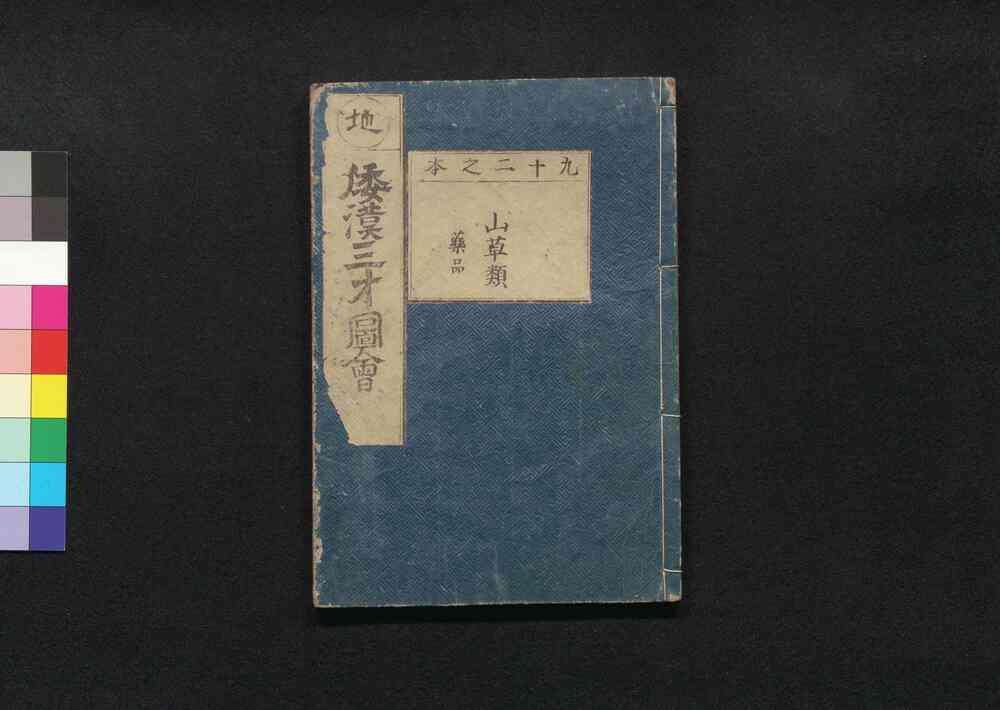 九十二之本
山草類
藥品
地
倭漢三才圖會